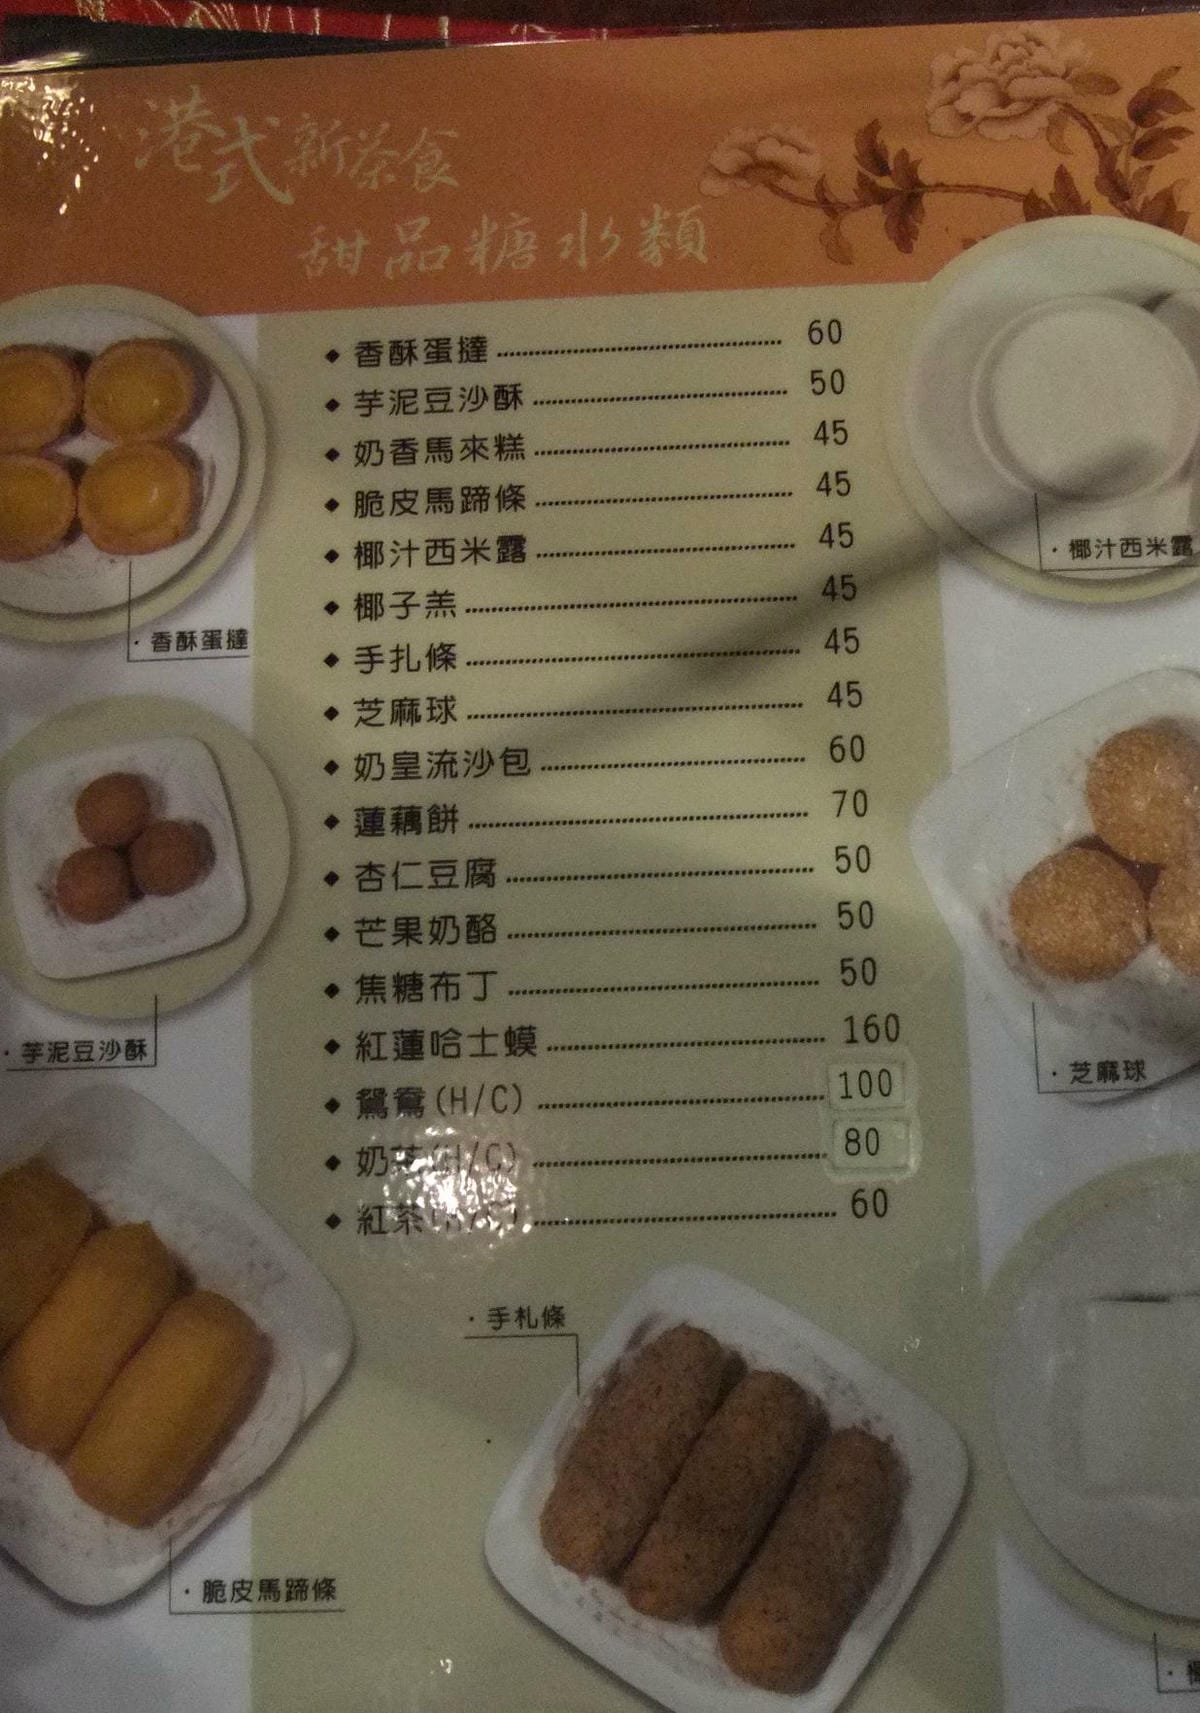 港式新茶食
甜品糖水類
◆ 香酥蛋撻 60
◆ 芋泥豆沙酥 50
◆ 奶香馬來糕 45
◆ 脆皮馬蹄條 45
◆ 椰汁西米露 45
◆ 椰子羔 45
◆ 手扎條 45
◆ 芝麻球 45
◆ 奶皇流沙包 60
◆ 蓮藕餅 70
◆ 杏仁豆腐 50
◆ 芒果奶酪 50
◆ 焦糖布丁 50
◆ 紅蓮哈士蟆 160
◆ 鴛鴦(H/C) 100
◆ 奶茶(H/C) 80
◆ 紅茶(H/C) 60
· 香酥蛋撻
· 芋泥豆沙酥
· 脆皮馬蹄條
· 手札條
· 椰汁西米露
· 芝麻球